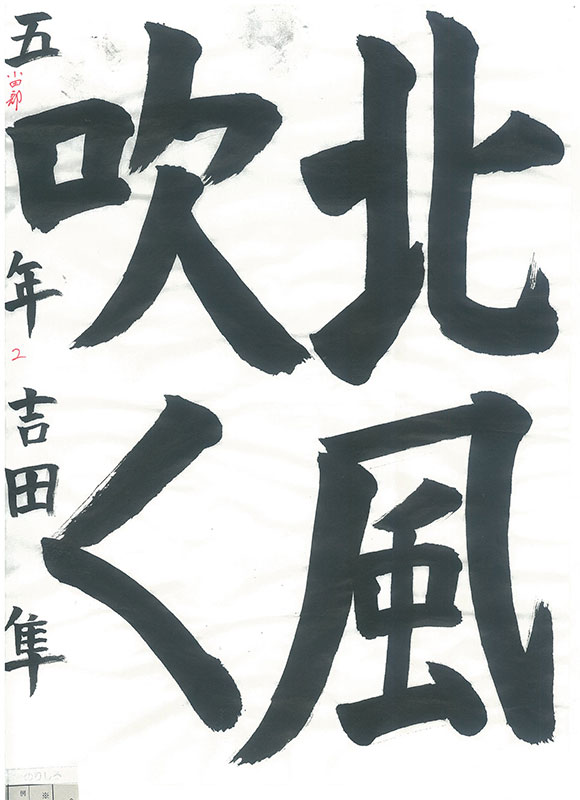 北風
吹く
五年 吉田 隼
小田郡
2